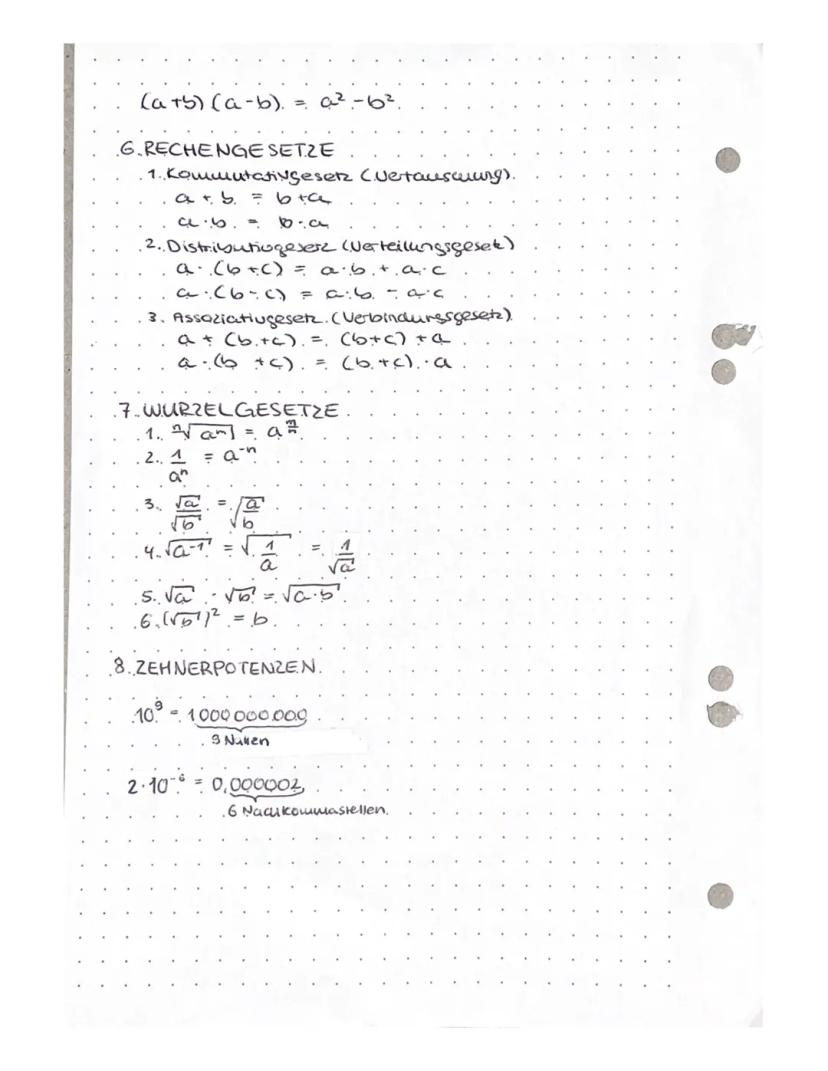 (a+b)(a-b) = a² - b²
6. RECHENGESETZE
1. Kommutativgesetz (Vertauschung)
a + b = b + a
a · b = b · a
2. Distributivgesetz (Verteilungsgesetz)
a · (b + c) = a · b + a · c
a · (b - c) = a · b - a · c
3. Assoziativgesetz (Verbindungsgesetz)
a + (b + c) = (b + c) + a
a · (b + c) = (b + c) · a
7. WURZELGESETZE
1. ⁿ√aᵐ = a^(m/n)
2. 1/aⁿ = a⁻ⁿ
3. √a/√b = √(a/b)
4. √a⁻¹ = √(1/a) = 1/√a
5. √a · √b = √(a·b)
6. (√b)² = b
8. ZEHNERPOTENZEN
10⁹ = 1000 000 000
9 Nullen
2·10⁻⁶ = 0,000002
6 Nachkommastellen